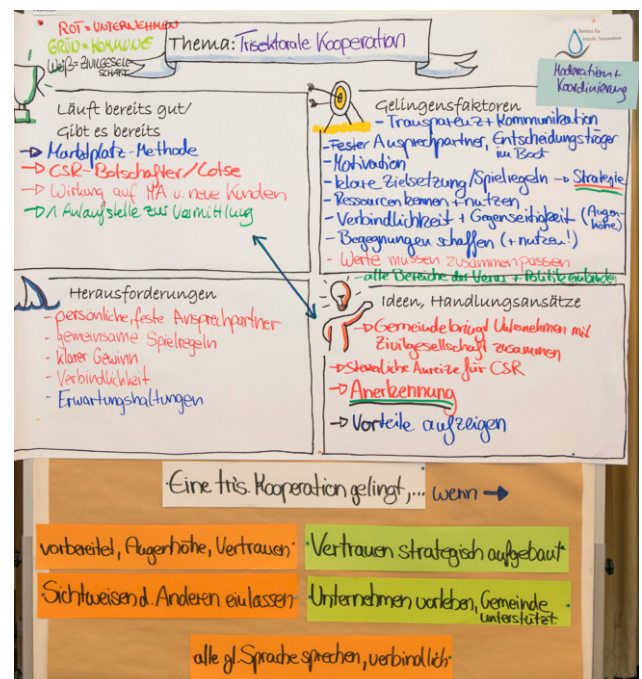 ROT = UNTERNEHMEN
GRÜN = KOMMUNE
Weiß = ZIVILGESELL
SCHAFT
Thema: Trisektorale Kooperation
Institut für
soziale Innovation
Moderation +
Koordinierung
Läuft bereits gut/
Gibt es bereits
Marktplatz-Methode
CSR-Botschafter/Lotse
Wirkung auf MA u. neue Kunden
1 Anlaufstelle zur Vermittlung
Gelingensfaktoren
- Transparenz + Kommunikation
- Fester Ansprechpartner, Entscheidungsträger
im Boot
- Motivation
- klare Zielsetzung/Spielregeln → Strategie
- Ressourcen kennen + nutzen
- Verbindlichkeit + Gegenseitigkeit (Augen-
höhe)
- Begegnungen schaffen (+ nutzen!)
- Werte müssen zusammenpassen
- alle Bereiche der Verw. + Politik einbinden
Herausforderungen
- persönliche, feste Ansprechpartner
- gemeinsame Spielregeln
- klarer Gewinn
- Verbindlichkeit
- Erwartungshaltungen
Ideen, Handlungsansätze
→ Gemeinde bringt Unternehmen mit
Zivilgesellschaft zusammen
→ steuerliche Anreize für CSR
→ Anerkennung
→ Vorteile aufzeigen
Eine tris. Kooperation gelingt,... wenn →
vorbereitet, Augenhöhe, Vertrauen
Vertrauen strategisch aufgebaut
Sichtweisen d. Anderen einlassen
Unternehmen vorleben, Gemeinde
unterstützt
alle gl. Sprache sprechen, verbindlich